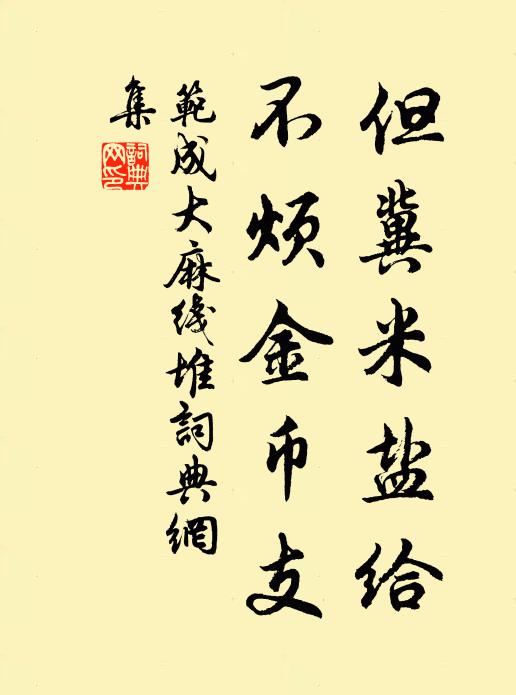 但冀米盐给
不烦金币支
範成大麻线堆詞典網
集
詞典
网印